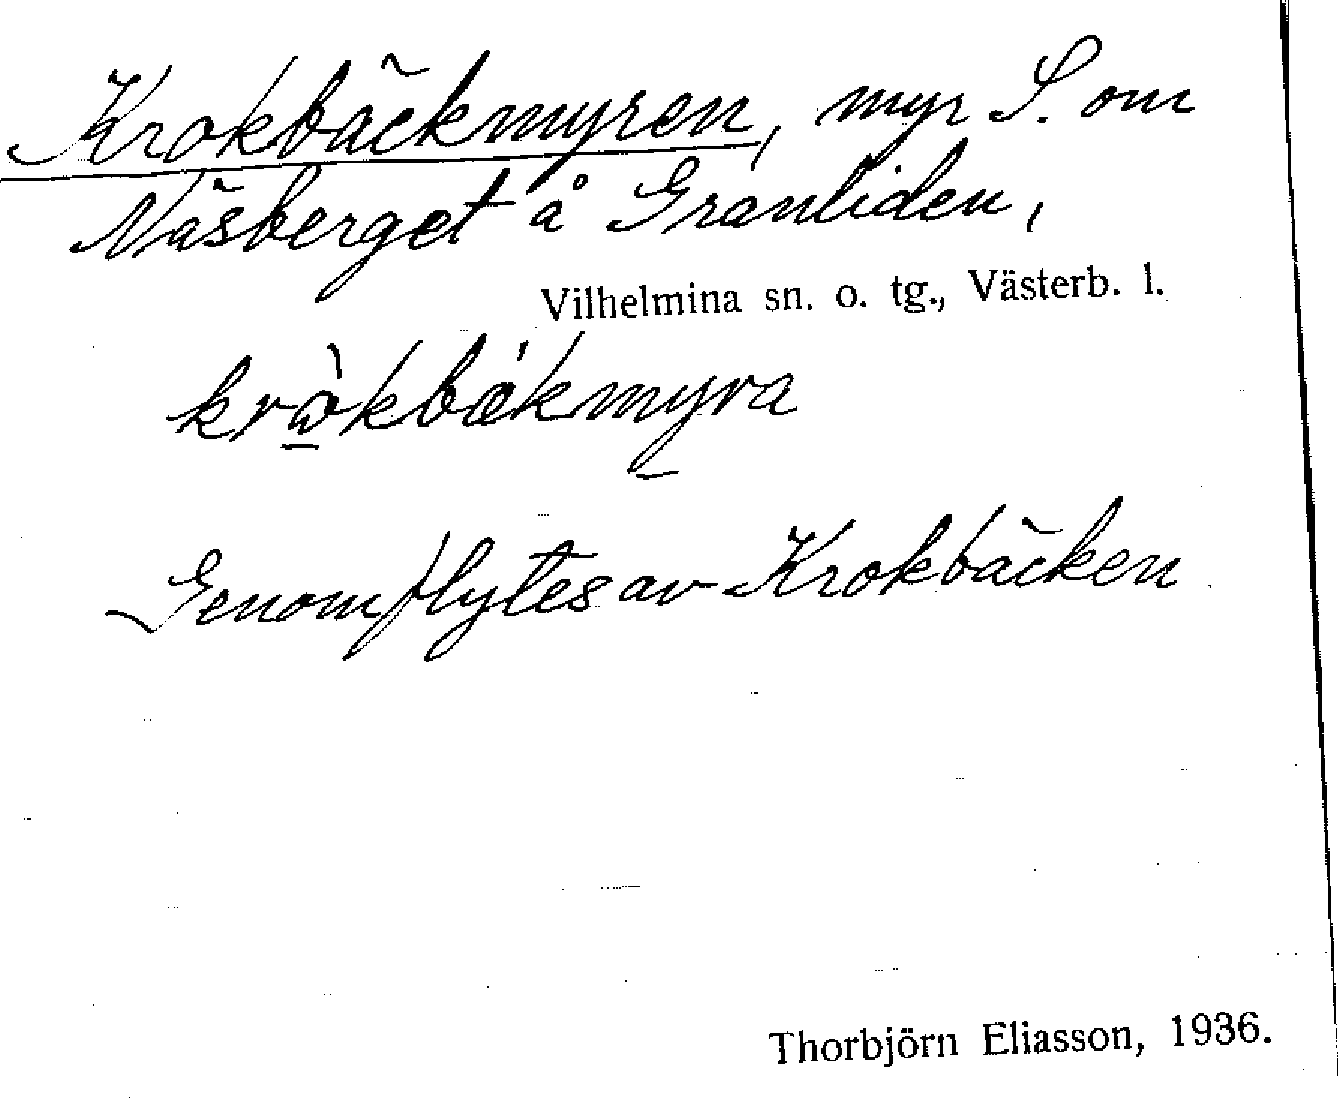 Krokbäckmyren, myr S. om
Näsberget å Granliden,
Vilhelmina sn. o. tg., Västerb. l.
krò̱kbækmyra
Genomflytes av Krokbäcken
Thorbjörn Eliasson, 1936.